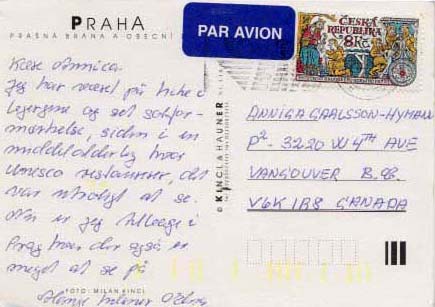 PRAHA
PRAŠNÁ BRÁNA A OBECNÍ
PAR AVION
ČESKÁ
REPUBLIKA
8Kč
Kære Annica.
Jeg har været på hike i
og set solfor-
mørkelse, siden i en
middelalderby hvor
Unesco restaurerer, det
var utroligt at se.
Nu er jeg tilbage i
Prag hvor der også er
meget at se på
© KINCL & HAUNER
ANNICA CARLSSON-HYMAN
P2 - 3220 W 4TH AVE
VANCOUVER B.C.
V6K 1R8 CANADA
FOTO: MILAN KINCL